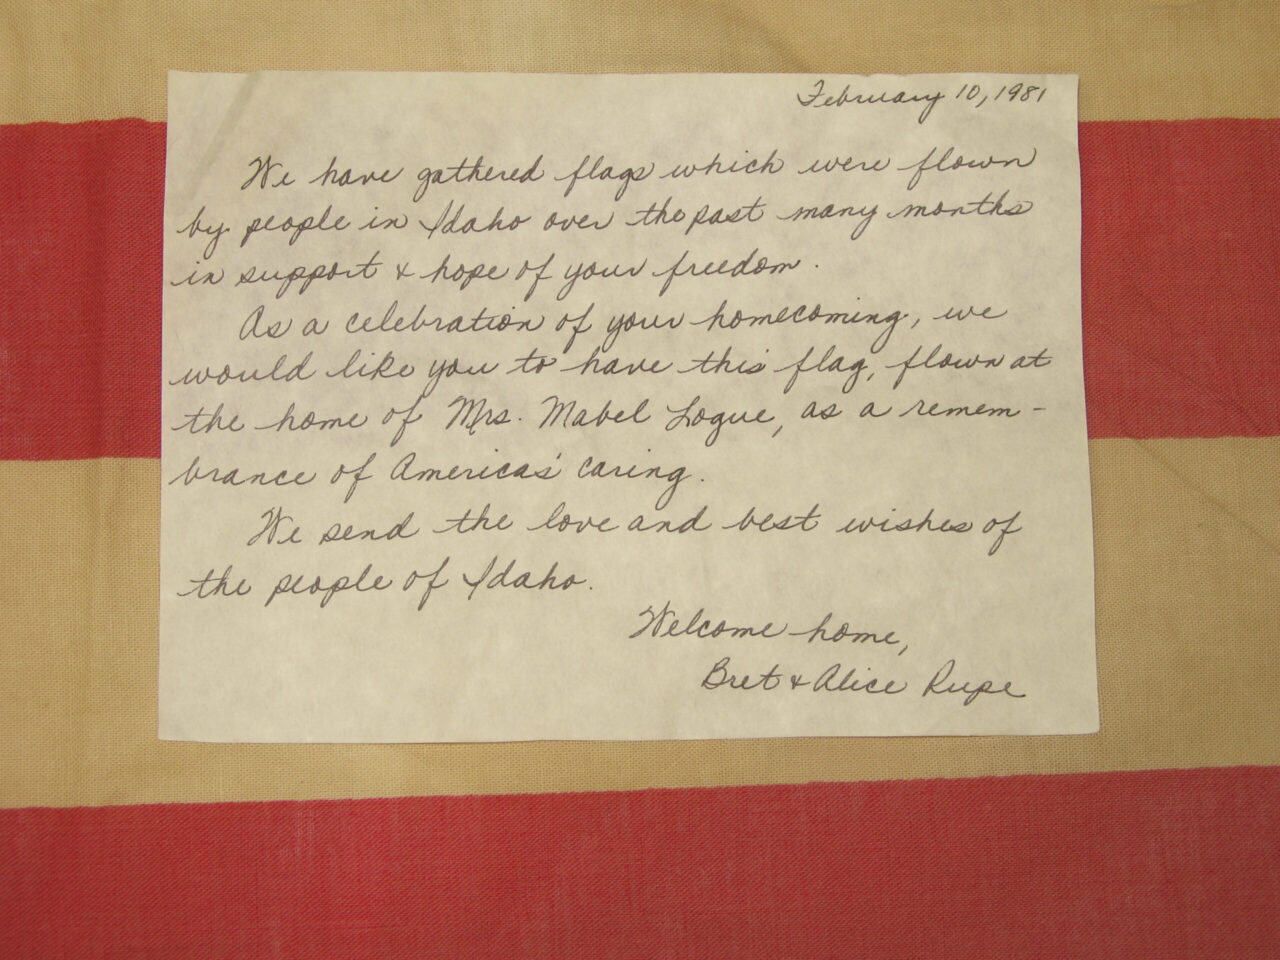 February 10, 1981
We have gathered flags which were flown
by people in Idaho over the past many months
in support & hope of your freedom.
As a celebration of your homecoming, we
would like you to have this flag, flown at
the home of Mrs. Mabel Logue, as a remem-
brance of Americas' caring.
We send the love and best wishes of
the people of Idaho.
Welcome home,
Bret & Alice Rupe